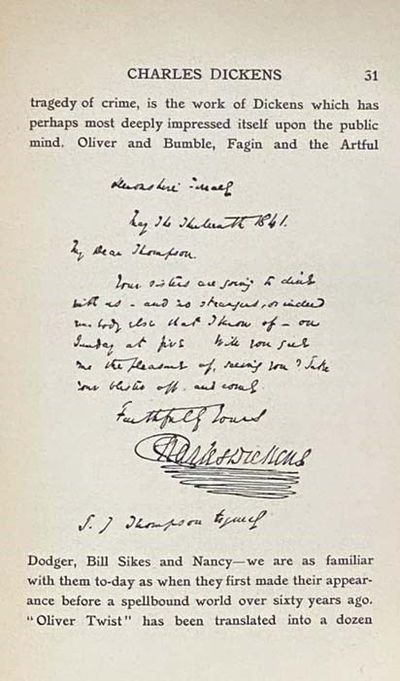 CHARLES DICKENS 31
tragedy of crime, is the work of Dickens which has
perhaps most deeply impressed itself upon the public
mind. Oliver and Bumble, Fagin and the Artful
Devonshire Terrace
1841.
My Dear Thompson.
Your sisters are going to dine
with us - and no strangers, or indeed
body else that I know of - on
Sunday at five Will you give
me the pleasure of seeing you? Take
your off. and come
Faithfully Yours
Charles Dickens
Thompson Esquire
Dodger, Bill Sikes and Nancy—we are as familiar
with them to-day as when they first made their appear-
ance before a spellbound world over sixty years ago.
"Oliver Twist" has been translated into a dozen